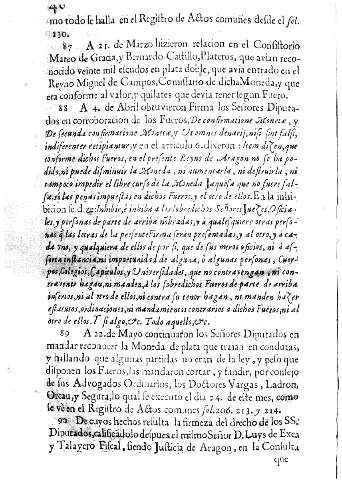 40
mo todo se halla en el Registro de Actos comunes desde el fol.
130.
87 A 21. de Marzo hizieron relacion en el Consistorio
Mateo de Gracia, y Bernardo Castillo, Plateros, que avian reconocido
veinte mil escudos en plata doble, que avia entrado en
el Reyno Miguel de Campos, Comissario de dicha Moneda, y que
era conforme al valor, y quilates que devia tener segun Fuero.
88 A 4. de Abril obtuvieron Firma los Señores Diputados
en corroboracion de los Fueros, De confirmatione Monetæ, y
De secunda confirmatione Monetæ, y Ut omnes denarij, nisi sint falsi,
indiferenter recipiantur, y en el articulo 6. dixeron: Item dizen, que
conforme dichos Fueros, en el presente Reyno de Aragon no se ha podido,
ni puede disminuir la Moneda, ni aumentarla, ni destruirla, ni
tampoco impedir el libre curso de la Moneda Jaquesa que no fuere falsa,
so las penas impuestas en dichos Fueros, y el otro de ellos. En la inhibicion
se dize: Inhibo, è inhiba à los sobredichos Señores Juezes, Oficiales,
y personas de parte de arriba nõbradas, y à qualesquiere otras personas
à las letras de la presente Firma serán presentadas, y al otro, y à cada
vno, y qualquiera de ellos de por si, que de sus meros oficios, ni à asserta
instancia, ni importunidad de alguna, ò algunas personas, Cuerpos,
Colegios, Capitulos, y Universidades, que no contravengan, ni contravenir
hagan, ni manden, à los sobredichos Fueros de parte de arriba
insertos, ni al otro de ellos, ni contra su tenor hagan, ni manden hazer
estatutos, ordinaciones, ni mandamientos contrarios à dichos Fueros, ni al
otro de ellos. Y si algo, &c. Todo aquello, &c.
89 A 22. de Mayo continuaron los Señores Diputados en
mandar reconocer la Moneda de plata que traian en condutas,
y hallando que algunas partidas no eran de la ley, y peso que
disponen los Fueros, las mandaron cortar, y fundir, por consejo
de sus Advogados Ordinarios, los Doctores Vargas, Ladron,
Orcau, y Segura, lo qual se executò el dia 24. de este mes, como
se vè en el Registro de Actos comunes fol. 206. 213. y 214.
90 De cuyos hechos resulta la firmeza del drecho de los SS.
Diputados, calificadolo despues el mismo Señor D. Luys de Exea
y Talayero Fiscal, siendo Justicia de Aragon, en la Consulta
que